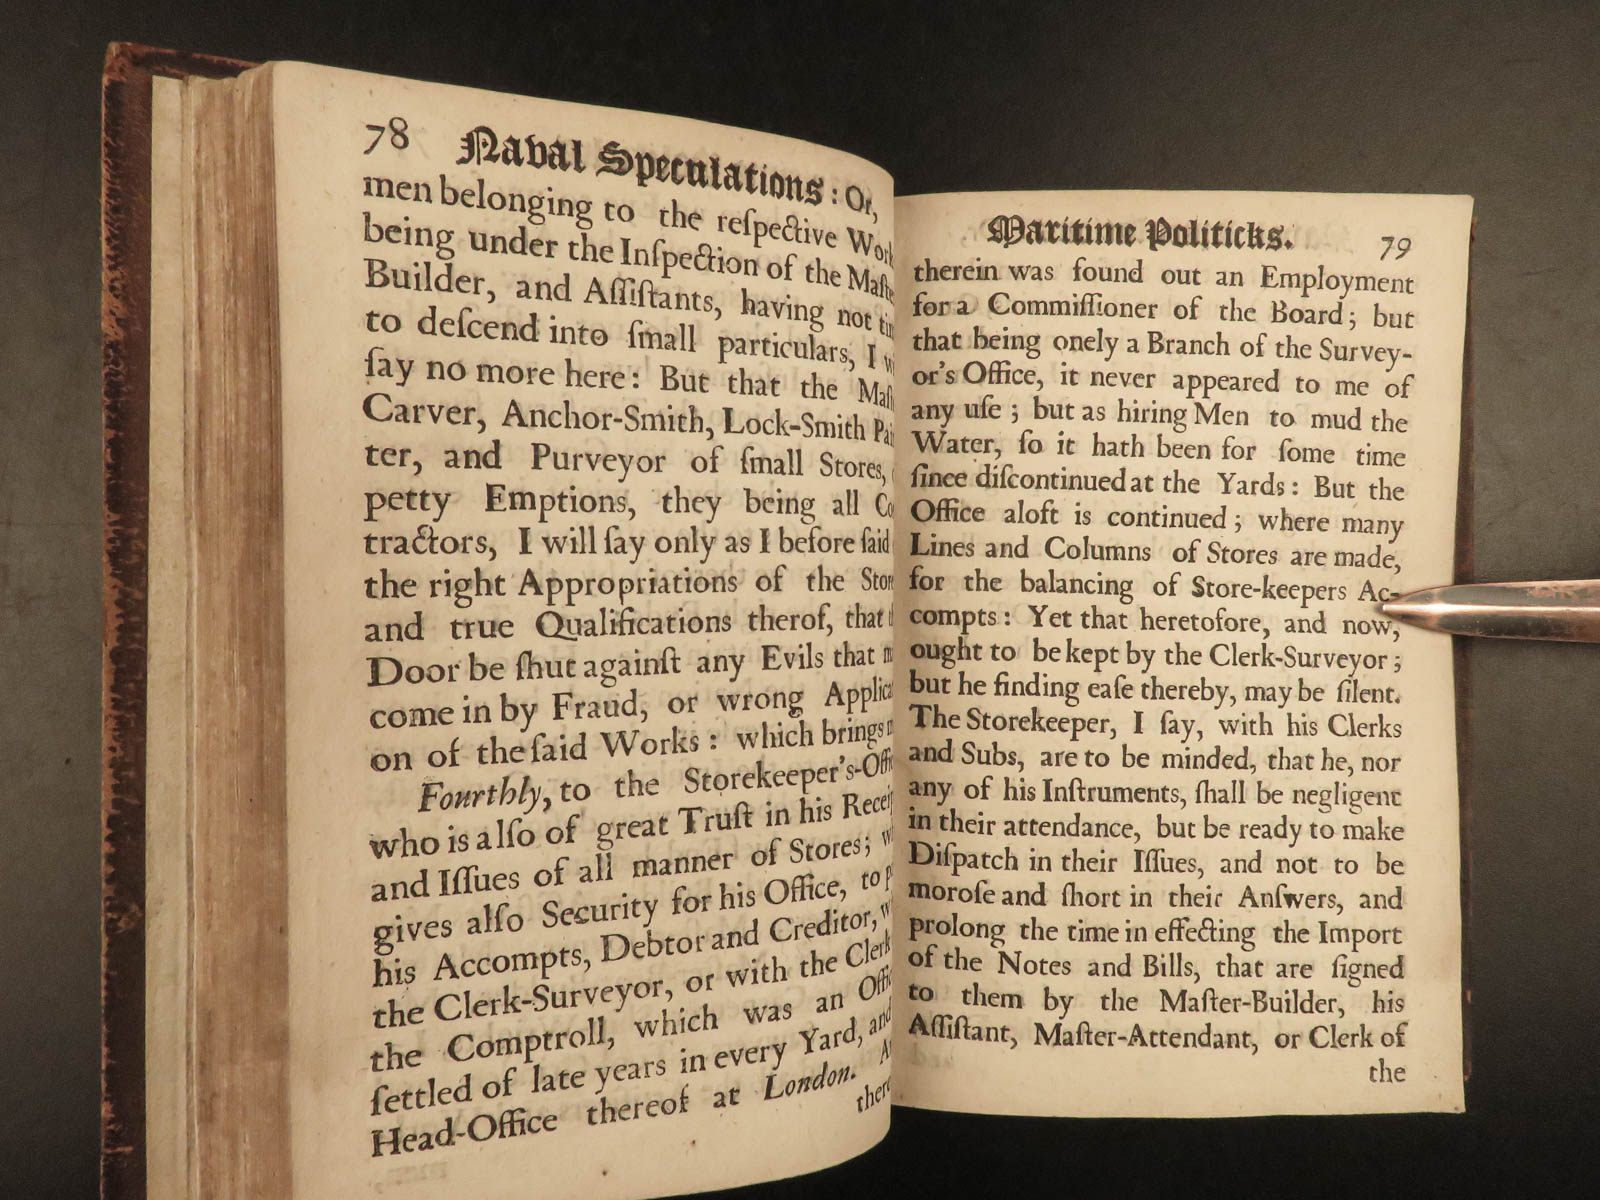 78 Naval Speculations: Or,
men belonging to the reſpective
being under the Inſpection of the
Builder, and Aſſiſtants, having not
to deſcend into ſmall particulars, I
ſay no more here: But that the
Carver, Anchor-Smith, Lock-Smith
ter, and Purveyor of ſmall Stores,
petty Emptions, they being all
tractors, I will ſay only as I before ſaid
the right Appropriations of the
and true Qualifications therof, that
Door be ſhut againſt any Evils that
come in by Fraud, or wrong
on of the ſaid Works: which brings
Fourthly, to the Storekeeper's-
who is alſo of great Truſt in his
and Iſſues of all manner of Stores;
gives alſo Security for his Office, to
his Accompts, Debtor and Creditor,
the Clerk-Surveyor, or with the
the Comptroll, which was an
ſettled of late years in every Yard, and
Head-Office thereof at London.
Maritime Politicks. 79
therein was found out an Employment
for a Commiſſioner of the Board; but
that being onely a Branch of the Survey-
or's Office, it never appeared to me of
any uſe; but as hiring Men to mud the
Water, ſo it hath been for ſome time
ſince diſcontinued at the Yards: But the
Office aloft is continued; where many
Lines and Columns of Stores are made,
for the balancing of Store-keepers Ac-
compts: Yet that heretofore, and now,
ought to be kept by the Clerk-Surveyor;
but he finding eaſe thereby, may be ſilent.
The Storekeeper, I ſay, with his Clerks
and Subs, are to be minded, that he, nor
any of his Inſtruments, ſhall be negligent
in their attendance, but be ready to make
Diſpatch in their Iſſues, and not to be
moroſe and ſhort in their Anſwers, and
prolong the time in effecting the Import
of the Notes and Bills, that are ſigned
to them by the Maſter-Builder, his
Aſſiſtant, Maſter-Attendant, or Clerk of
the